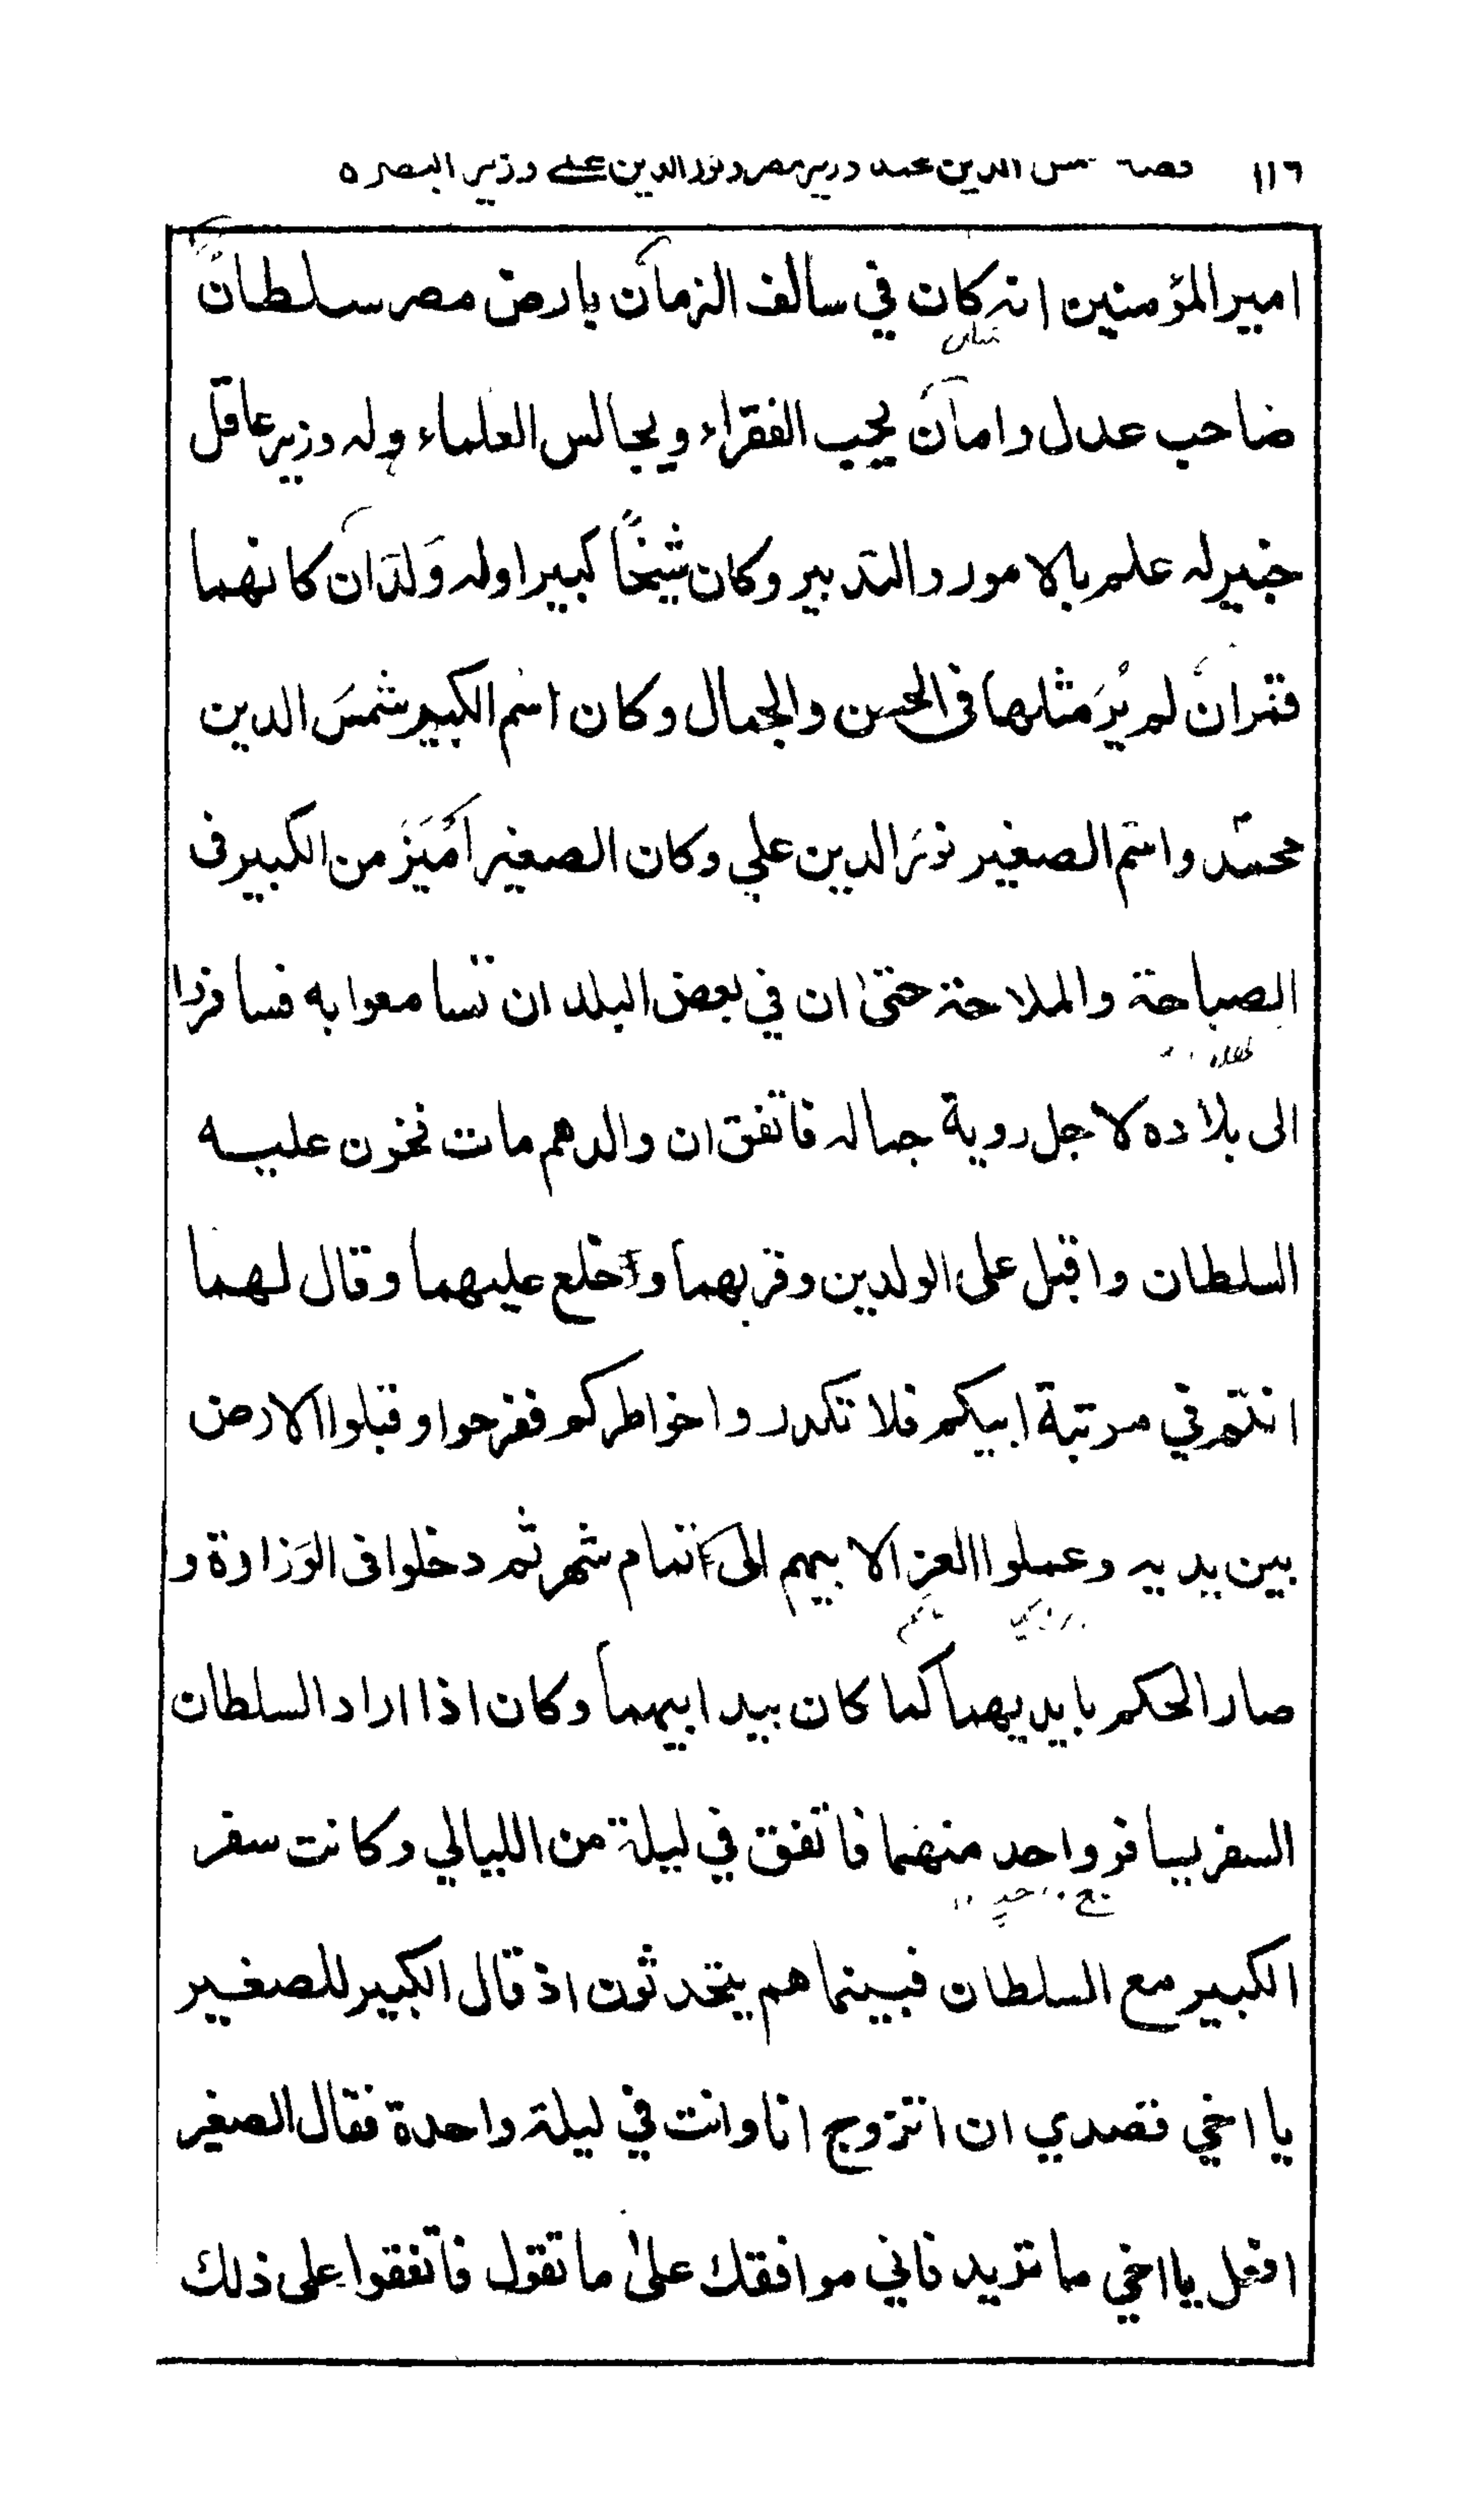 ١١٦ قصة شمس الدين محمد وزير مصر ونور الدين على وزير البصره
امير المؤمنين انه كان في سالف الزمان بارض مصر سلطانٌ
صاحب عدل وامان يحب الفقراء ويجالس العلماء وله وزير عاقل
خبير له علم بالامور والتدبير وكان شيخًا كبيرا وله وَلَدَان كانهما
قمران لم يُرَ مثلهما فى الحسن والجمال وكان اسم الكبير شمسَ الدين
محمّد واسم الصغير نورَ الدين علي وكان الصغير اَمْيَزَ من الكبير فى
الصباحة والملاحة حتىٰ ان في بعض البلدان تسامعوا به فسافروا
الى بلاده لاجل روية جماله فاتفق ان والدهم مات فحزن عليه
السلطان واقبل على الولدين وقربهما واخلع عليهما وقال لهما
انتم في مرتبة ابيكم فلا تكدروا خواطركم ففرحوا وقبلوا الارض
بين يديه وعملوا العزا لابيهم الى تمام شهر ثم دخلوا فى الوَزارة و
صار الحكم بايديهما كما كان بيد ابيهما وكان اذا اراد السلطان
السفر يسافر واحد منهما فاتفق في ليلة من الليالي وكانت سفر
الكبير مع السلطان فبينما هم يتحدثون اذ قال الكبير للصغير
يا اخي قصدي ان اتزوج انا وانت في ليلة واحدة فقال الصغير
افعل يا اخي ما تريد فاني موافقك علىٰ ما تقول فاتفقوا على ذلك